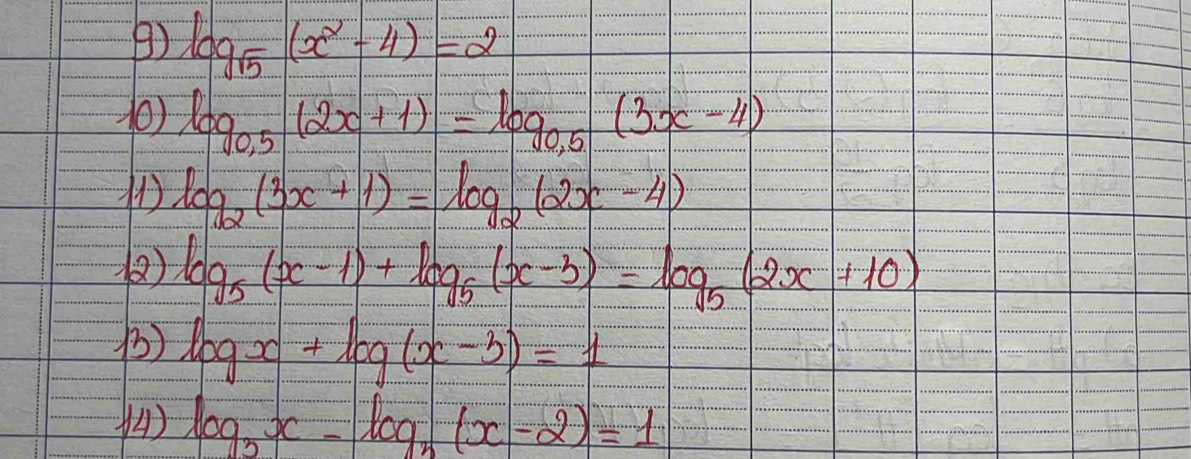 9) log_√5 (x² - 4) = 2
10) log_0,5 (2x + 1) = log_0,5 (3x - 4)
11) log_2 (3x + 1) = log_2 (2x - 4)
12) log_5 (x - 1) + log_5 (x - 3) = log_5 (2x + 10)
13) log x + log (x - 3) = 1
14) log_3 x - log_3 (x - 2) = 1